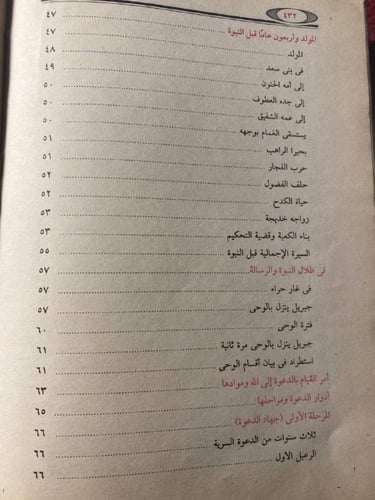 ٤٣٢
المولد وأربعون عامًا قبل النبوة ٤٧
المولد ٤٧
فى بنى سعد ٤٨
إلى أمه الحنون ٤٩
إلى جده العطوف ٥٠
إلى عمه الشفيق ٥٠
يستسقى الغمام بوجهه ٥٠
بحيرا الراهب ٥١
حرب الفجار ٥١
حلف الفضول ٥٢
حياة الكدح ٥٢
زواجه خديجة ٥٣
بناء الكعبة وقضية التحكيم ٥٣
السيرة الإجمالية قبل النبوة ٥٥
فى ظلال النبوة والرسالة ٥٧
فى غار حراء ٥٧
جبريل ينزل بالوحى ٥٧
فترة الوحى ٦٠
جبريل ينزل بالوحى مرة ثانية ٦١
استطراد فى بيان أقسام الوحى ٦١
أمر القيام بالدعوة إلى الله وموادها ٦٣
أدوار الدعوة ومراحلها ٦٥
المرحلة الأولى (جهاد الدعوة) ٦٦
ثلاث سنوات من الدعوة السرية ٦٦
الرعيل الأول ٦٦